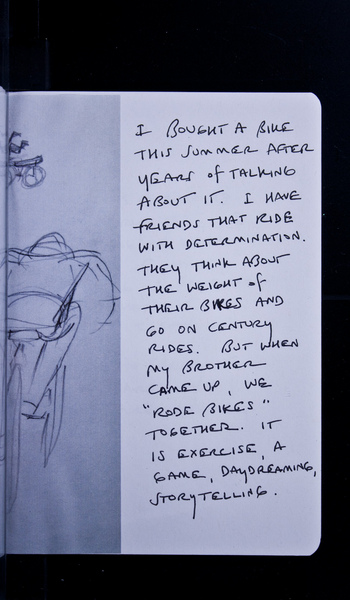 I BOUGHT A BIKE
THIS SUMMER AFTER
YEARS of TALKING
ABOUT IT. I HAVE
FRIENDS THAT RIDE
WITH DETERMINATION.
THEY THINK ABOUT
THE WEIGHT of
THEIR BIKES AND
GO ON CENTURY
RIDES. BUT WHEN
MY BROTHER
CAME UP, WE
"RODE BIKES"
TOGETHER. IT
IS EXERCISE, A
GAME, DAYDREAMING,
STORYTELLING.